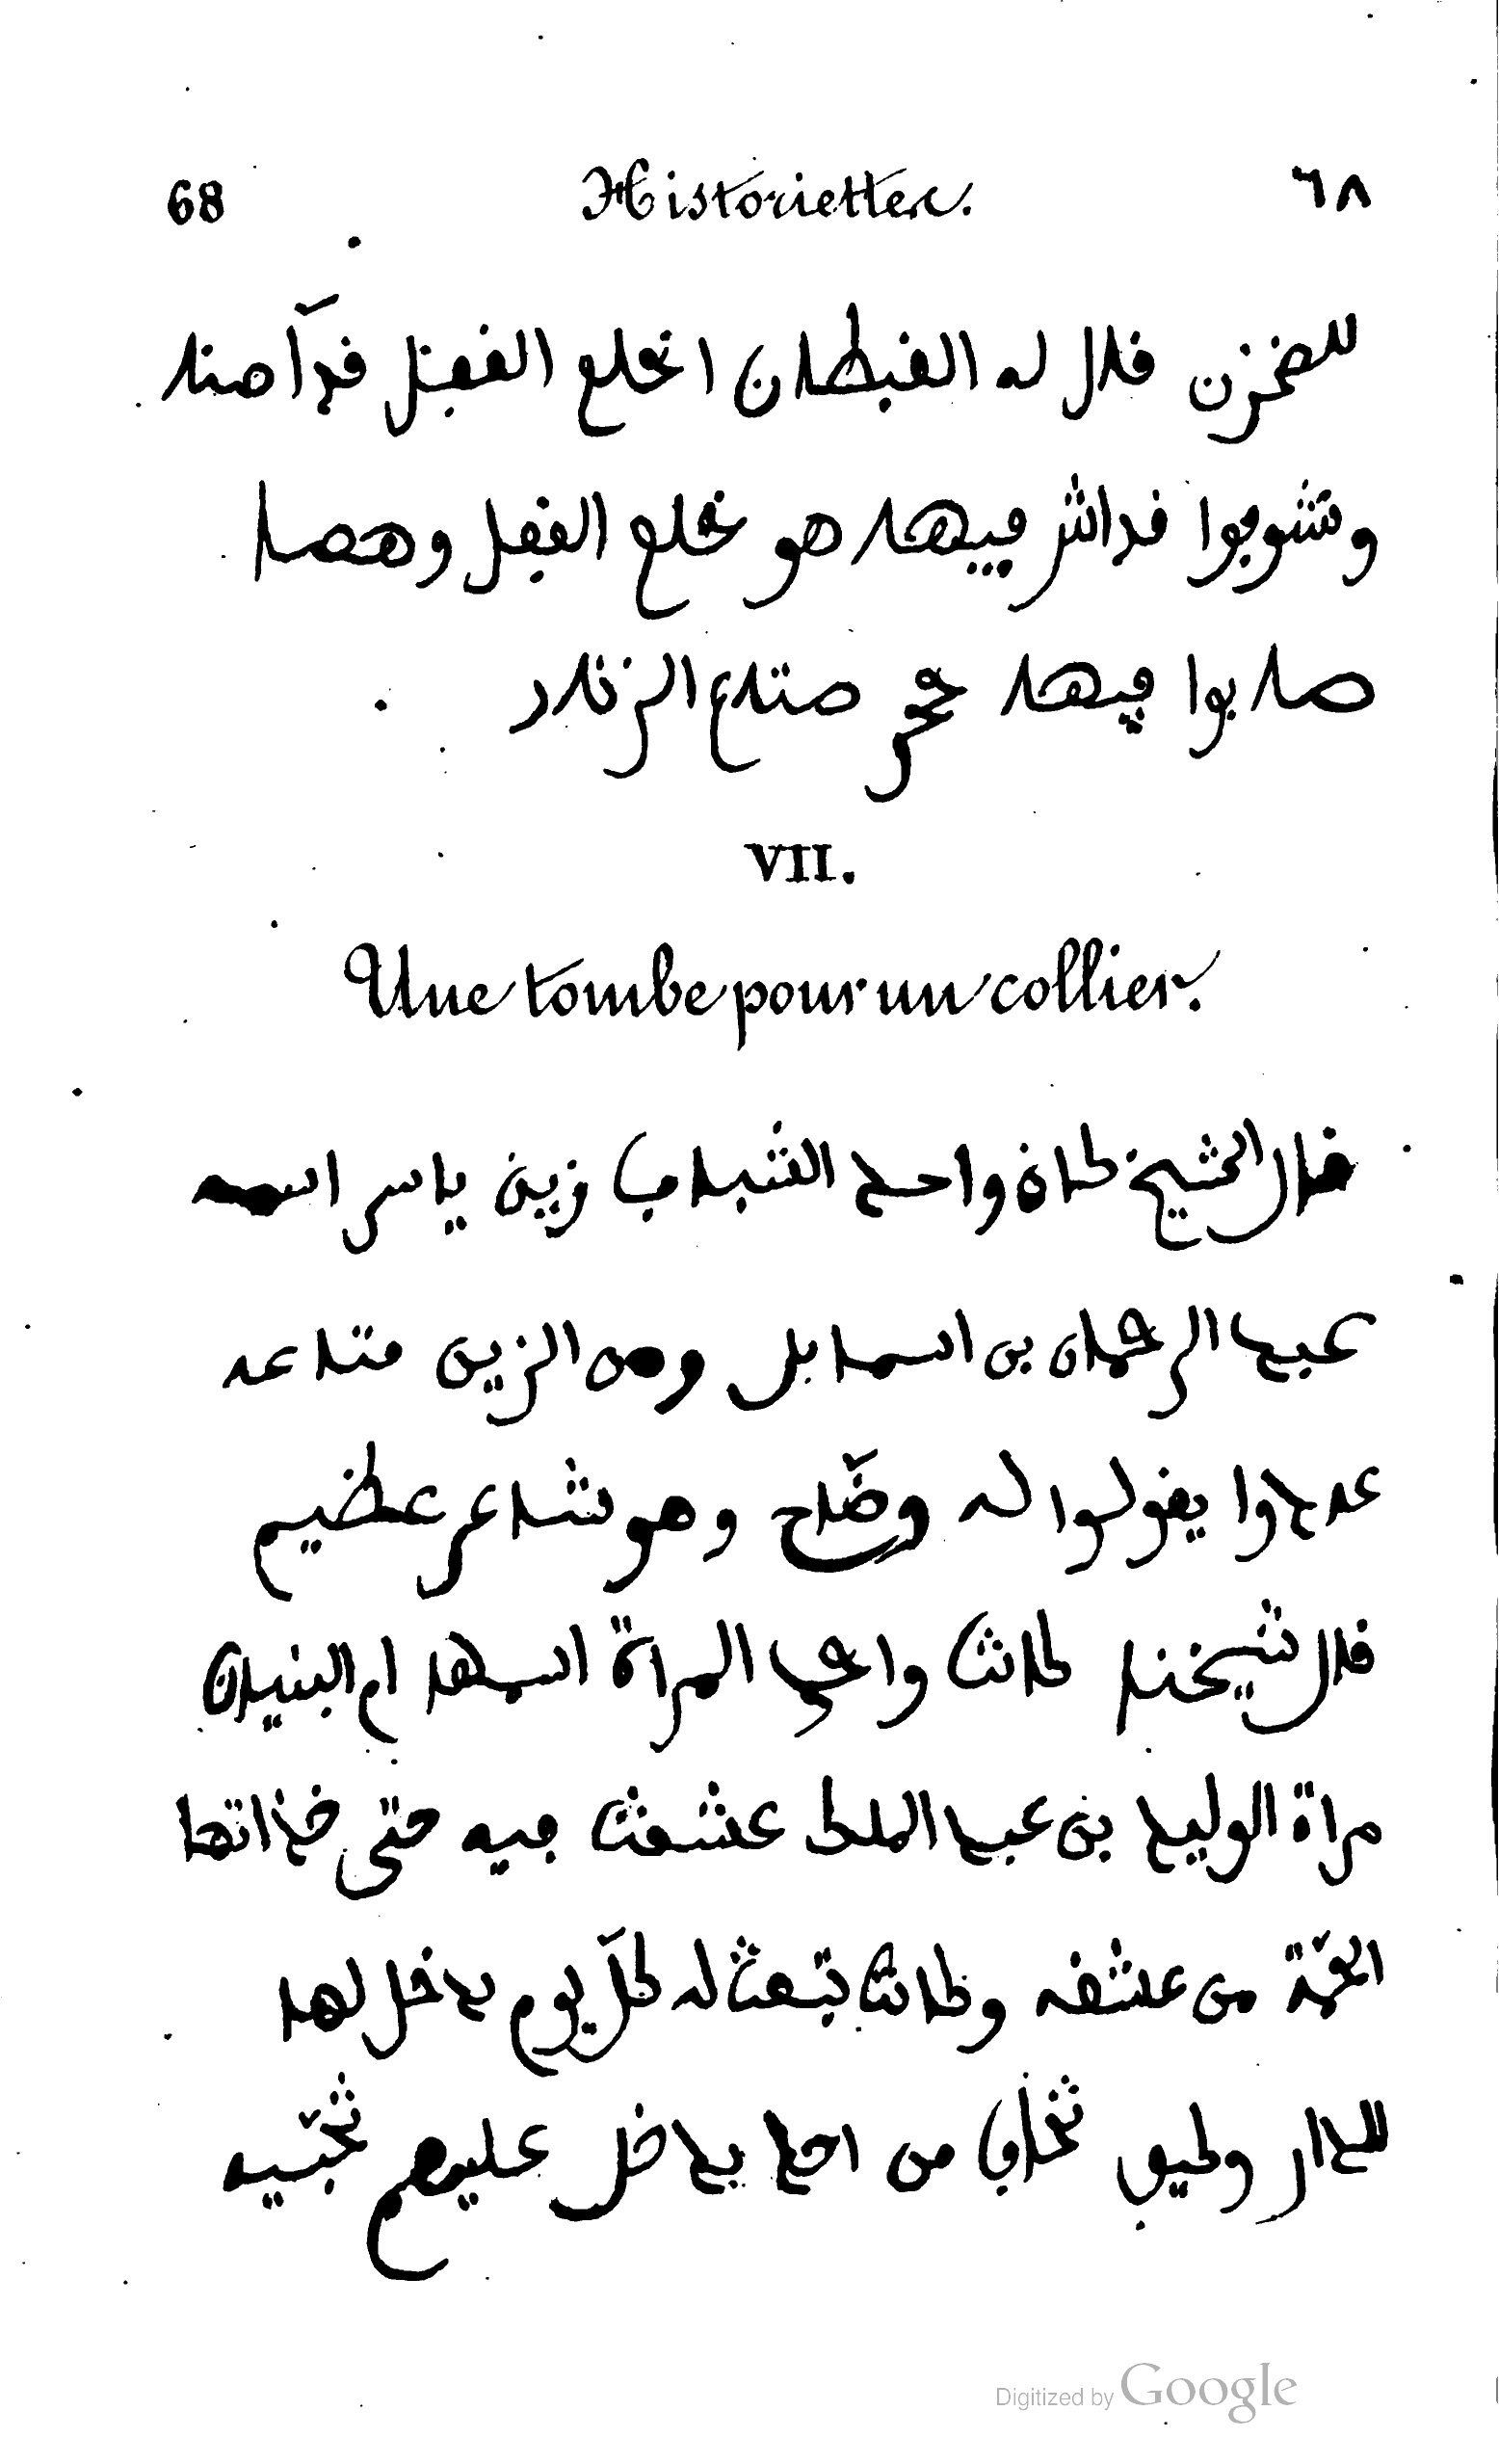 68 Historiettes. ٦٨
للمخزن قال له القبطان اتحلع القفل قدامنا
وشوبوا فداش فيها هو تحلع القفل وهما
صابوا فيها حجر متاع الزناد
VII.
Une tombe pour un collier.
قال الشيخ كان واحد الشباب زين ياسر اسمه
عبد الرحمان بن اسمايل ومن الزين متاعه
عادوا يقولوا له وضّاح وهو شاعر عظيم
قال شيخنا كانت واحد المراة اسمها ام البنيان
مراة الوليد بن عبد الملك عشقت فيه حتى خذاتها
الحمّة من عشقه وكانت تبعث له كلّ يوم يدخل لها
للدار وكيف تخاف من احد يدخل عليهم تخبّيه